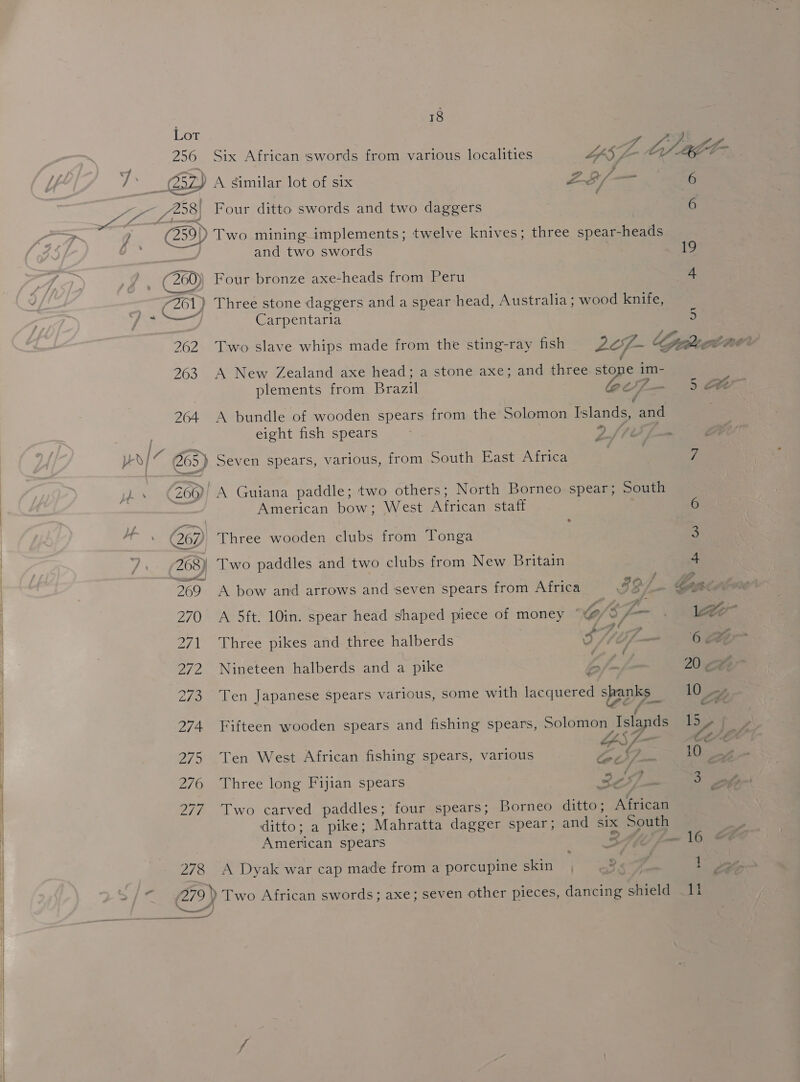 18
Lot
256 Six African swords from various localities
257 A similar lot of six 6
258 Four ditto swords and two daggers 6
259 Two mining implements; twelve knives; three spear-heads
and two swords 19
260 Four bronze axe-heads from Peru 4
261 Three stone daggers and a spear head, Australia; wood knife,
Carpentaria 5
262 Two slave whips made from the sting-ray fish
263 A New Zealand axe head; a stone axe; and three stone im-
plements from Brazil 5
264 A bundle of wooden spears from the Solomon Islands, and
eight fish spears
265 Seven spears, various, from South East Africa 7
266 A Guiana paddle; two others; North Borneo spear; South
American bow; West African staff 6
267 Three wooden clubs from Tonga 3
268 Two paddles and two clubs from New Britain 4
269 A bow and arrows and seven spears from Africa
270 A 5ft. 10in. spear head shaped piece of money
271 Three pikes and three halberds 6
272 Nineteen halberds and a pike 20
273 Ten Japanese spears various, some with lacquered shanks 10
274 Fifteen wooden spears and fishing spears, Solomon Islands 15
275 Ten West African fishing spears, various 10
276 Three long Fijian spears 3
277 Two carved paddles; four spears; Borneo ditto; African
ditto; a pike; Mahratta dagger spear; and six South
American spears 16
278 A Dyak war cap made from a porcupine skin 1
279 Two African swords; axe; seven other pieces, dancing shield 11